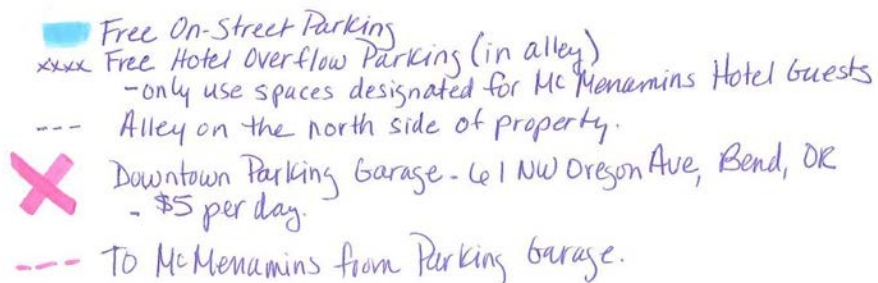 Free On-Street Parking
xxxx Free Hotel Overflow Parking (in alley)
- only use spaces designated for McMenamins Hotel Guests
--- Alley on the north side of property.
Downtown Parking Garage - 61 NW Oregon Ave, Bend, OR
- $5 per day.
--- To McMenamins from Parking Garage.